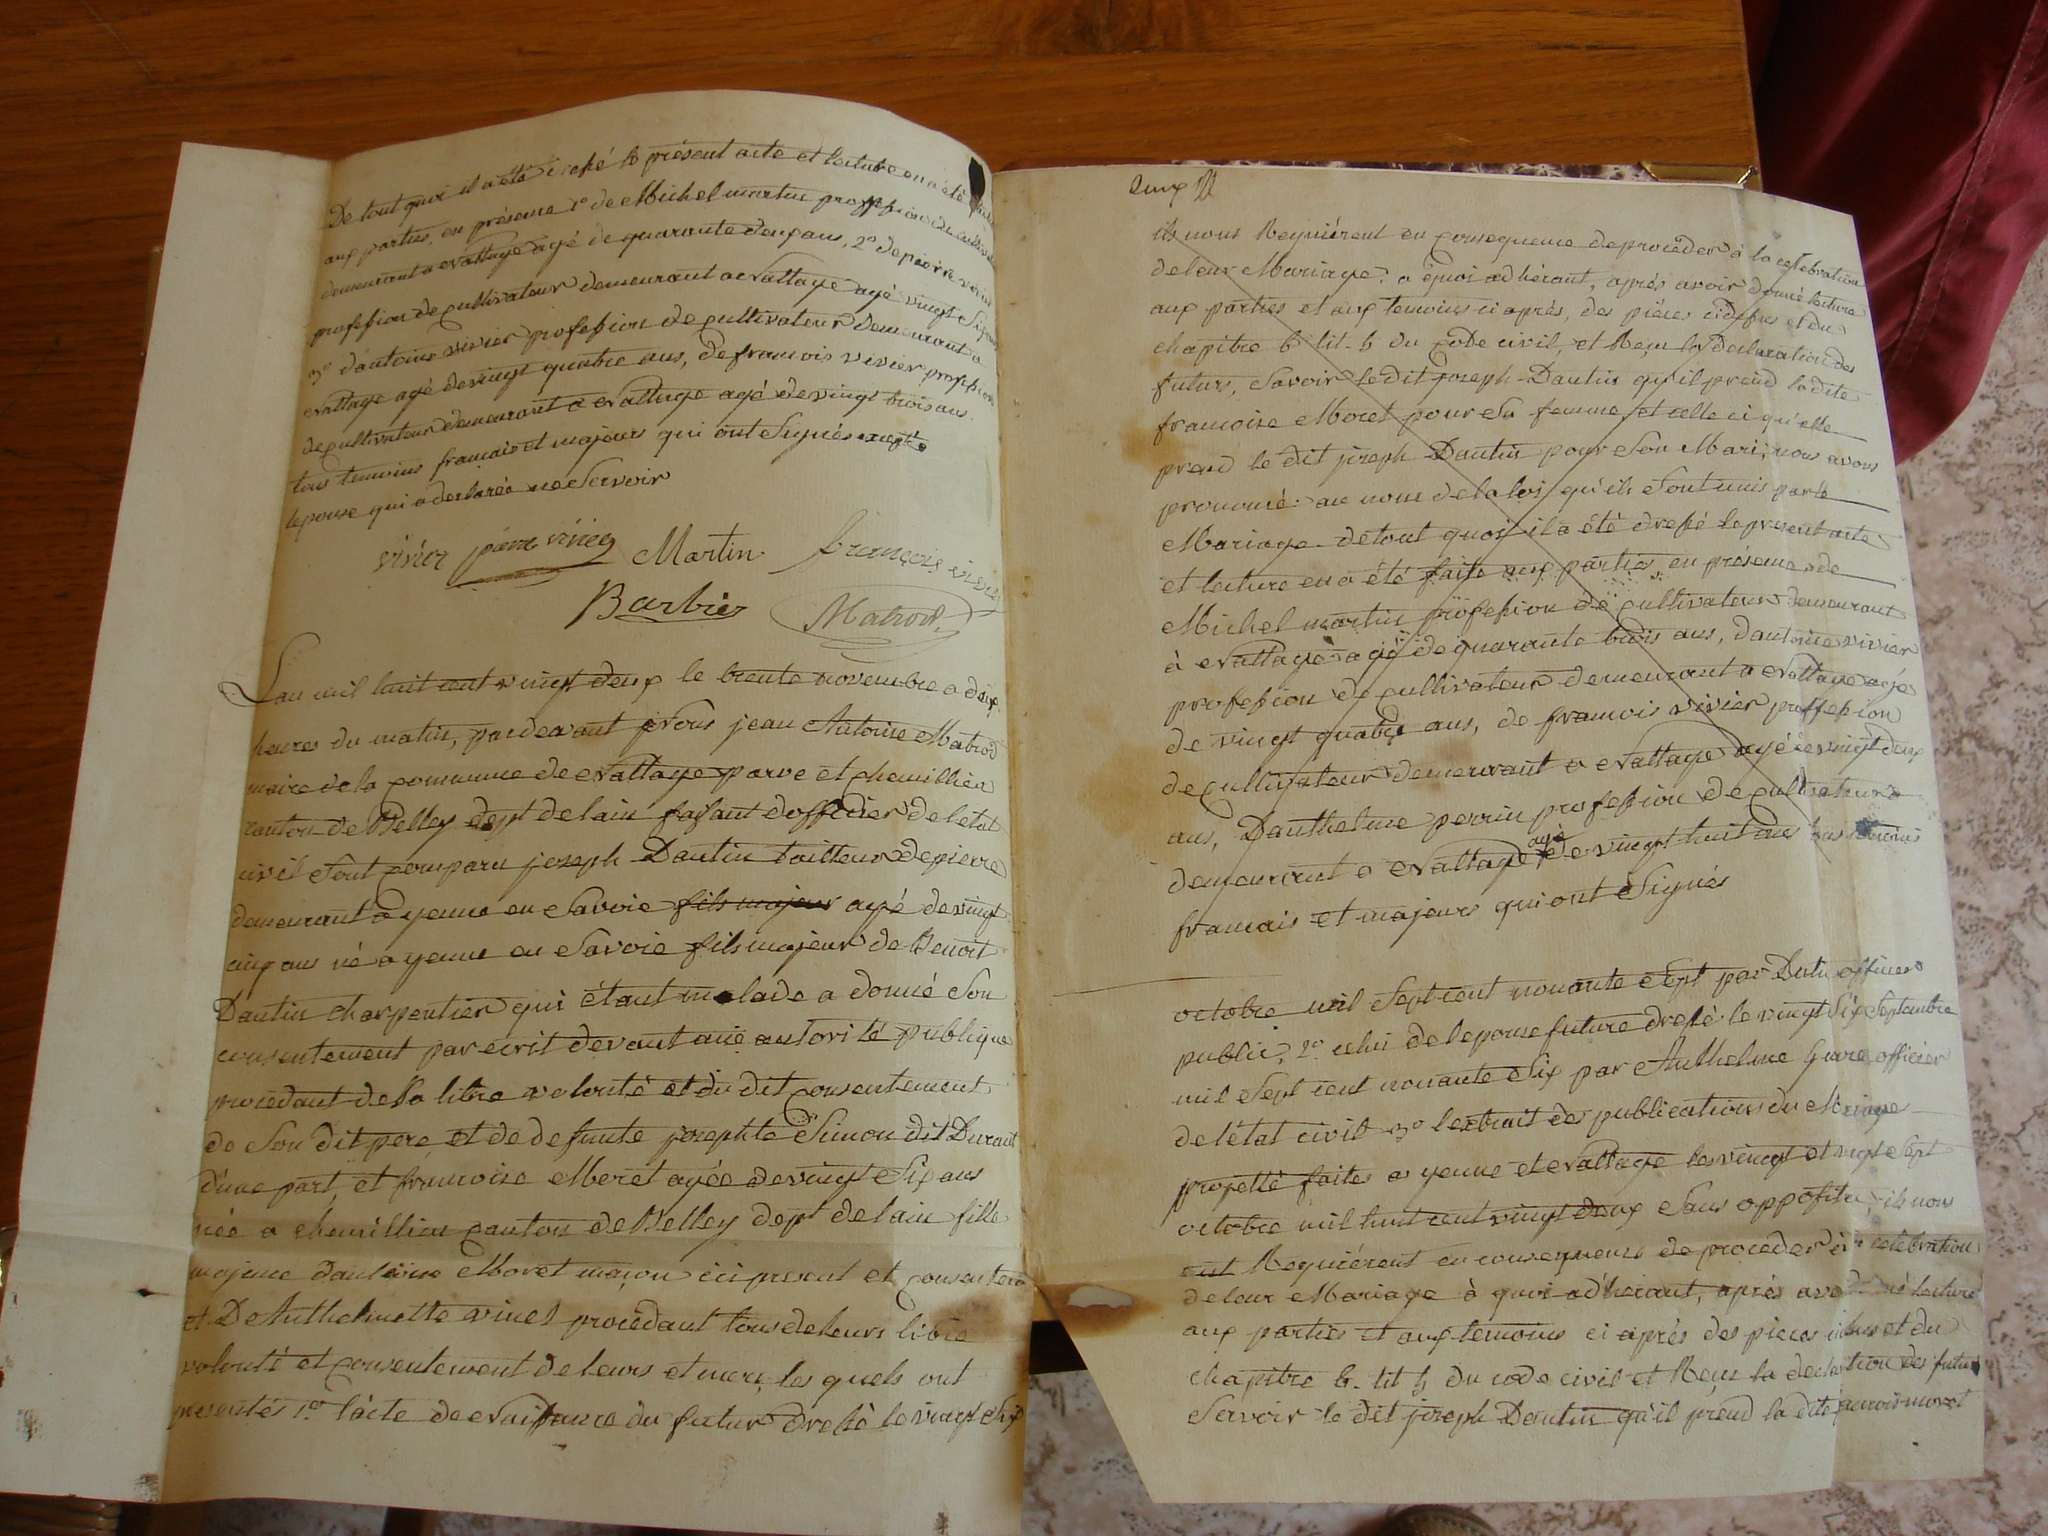 De tout quoi il a été dressé le présent acte et lecture en a été
aux parties, en présence 1º de Michel martin profession de
demeurant a nattage agé de quarante deux ans, 2º de pierre vivier
profession de cultivateur demeurant a nattage agé vingt six ans
3º dantoine vivier profession de cultivateur demeurant a
nattage agé de vingt quatre ans, de francois vivier profession
de cultivateur demeurant a nattage agé de vingt trois ans.
tous temoins francais et majeurs qui ont signés
lepouse qui a declarée ne Savoir
vivier pierre vivier Martin françois vivier
Barbier Matrod
Lan mil huit cent vingt deux le trente novembre a dix
heures du matin, pardevant Nous jean Antoine Matrod
maire de la commune de nattage parve et chemillieu
canton de Belley dept de lain faisant doffcier de letat
civil sont comparu joseph Dantin tailleur de pierre
demeurant a yenne en Savoie fils majeur agé de vingt
cinq ans né a yenne en Savoie fils majeur de Benoit
Dantin charpentier qui étant malade a donné son
consentement par ecrit devant une autorité publique
procédant de sa libre volonté et du dit consentement
de son dit pere, et de defunte josephte Simon dit Durant
dune part, et francoise Moret agée de vingt six ans
née a chemillieu canton de Belley dept de lain fille
majeure dantoine Moret maçon ici present et consentent
et De Anthelmette vinet procédant tous de leurs libre
volonté et consentement de leurs et mere, les quels ont
presentés 1º lacte de naissance du futur dressé le vingt six
ils nous Requiérent en consequence de procéder à la celebration
de leur Mariage: a quoi adhérant, aprés avoir donné lecture
aux parties et aux temoins ci aprés, des piéces cidessus et du
chapitre 6 tit. 5 du code civil, et Reçu la declaration des
futurs, Savoir le dit joseph Dantin qu'il prend la dite
francoise Moret pour sa femme, et celle ci qu'elle
prend le dit joseph Dantin pour son Mari, nous avons
prononcé au nom de la loi qu'ils sont unis par le
Mariage. de tout quoi il a été dressé le present acte
et lecture en a été faite aux parties en présence de
Michel martin profession de cultivateur demeurant
à nattage agé de quarante trois ans, dantoine vivier
profession de cultivateur demeurant a nattage agé
de vingt quatre ans, de francois vivier profession
de cultivateur demeurant a nattage agé de vingt deux
ans, Danthelme perrin profession de cultivateur
demeurant a nattage agé de vingt huit ans tous temoins
francais et majeurs qui ont signés
octobre mil sept cent nonante sept par officier
public, 2º celui de lepouse future dressé le vingt six Septembre
mil sept cent nonante six par Anthelme officier
de létat civil 3º lextrait des publications du Mariage
projetté faites a yenne et nattage les vingt et vingt sept
octobre mil huit cent vingt deux sans oppositu, ils nous
ont Requiérent en consequence de proceder à la celebration
de leur Mariage à quoi adhérant, aprés avoir donné lecture
aux parties et aux temoins ci aprés des pieces et du
chapitre 6. tit 5 du code civil et Reçu la declaration des futurs
Savoir le dit joseph Dantin qu'il prend la dite francoise moret